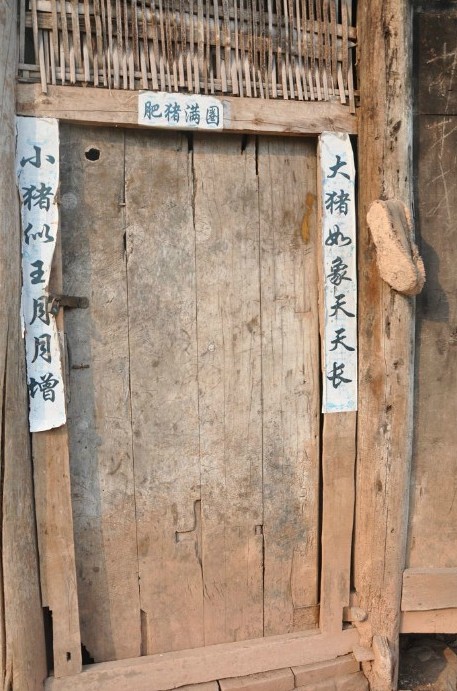 肥猪满圈
大猪如象天天长
小猪似王月月增